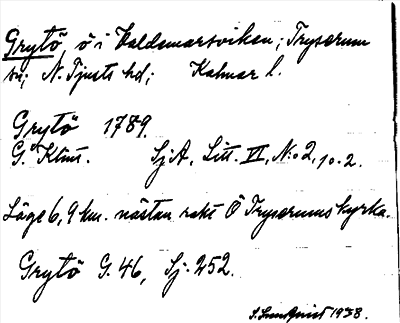 Grytö, ö i Valdemarsviken; Tryserum
sn; N. Tjusts hd; Kalmar l.
Grytö 1789.
G. Klint. SjA, Litt. VI, N:o 2, 10.2.
Läge 6,9 km. nästan rakt Ö Tryserums kyrka.
Grytö G. 46, Sj. 252.
S. Lundqvist 1938.